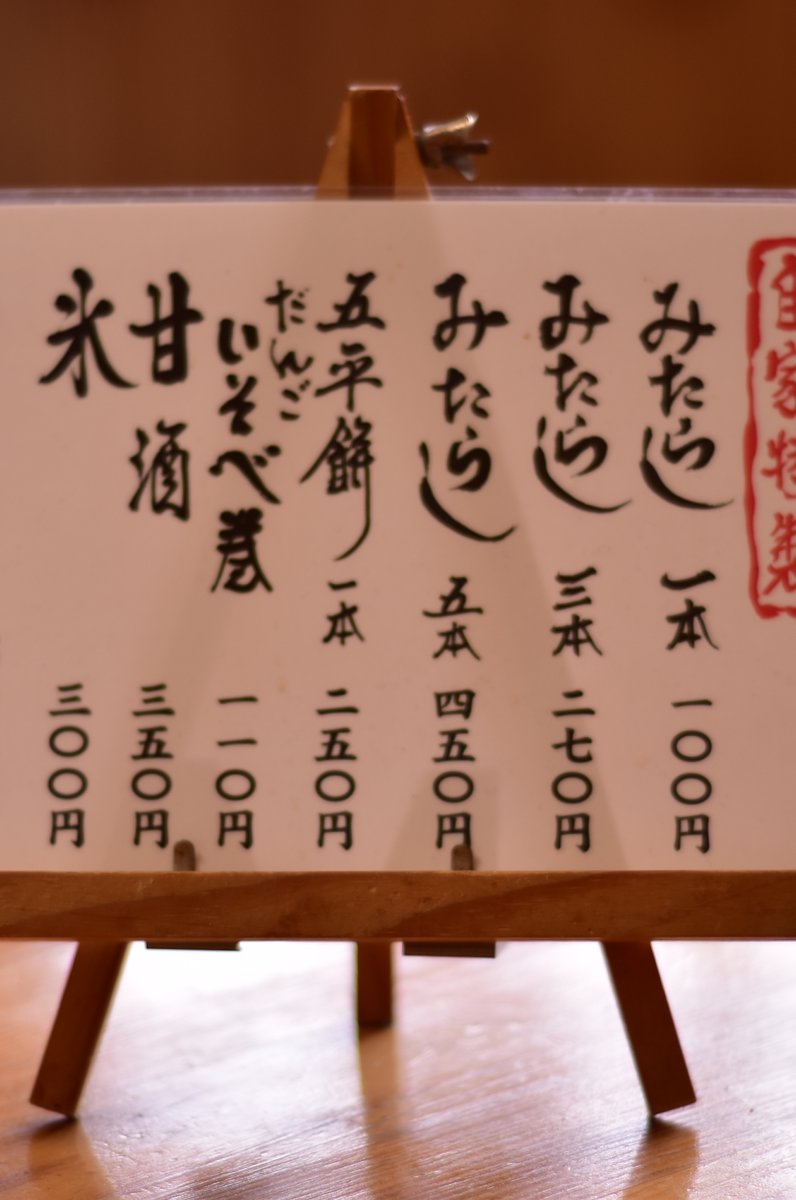 自家特製
みたらし 一本 一〇〇円
みたらし 三本 二七〇円
みたらし 五本 四五〇円
五平餅 一本 二五〇円
だんご
いそべ巻 一一〇円
甘酒 三五〇円
氷 三〇〇円